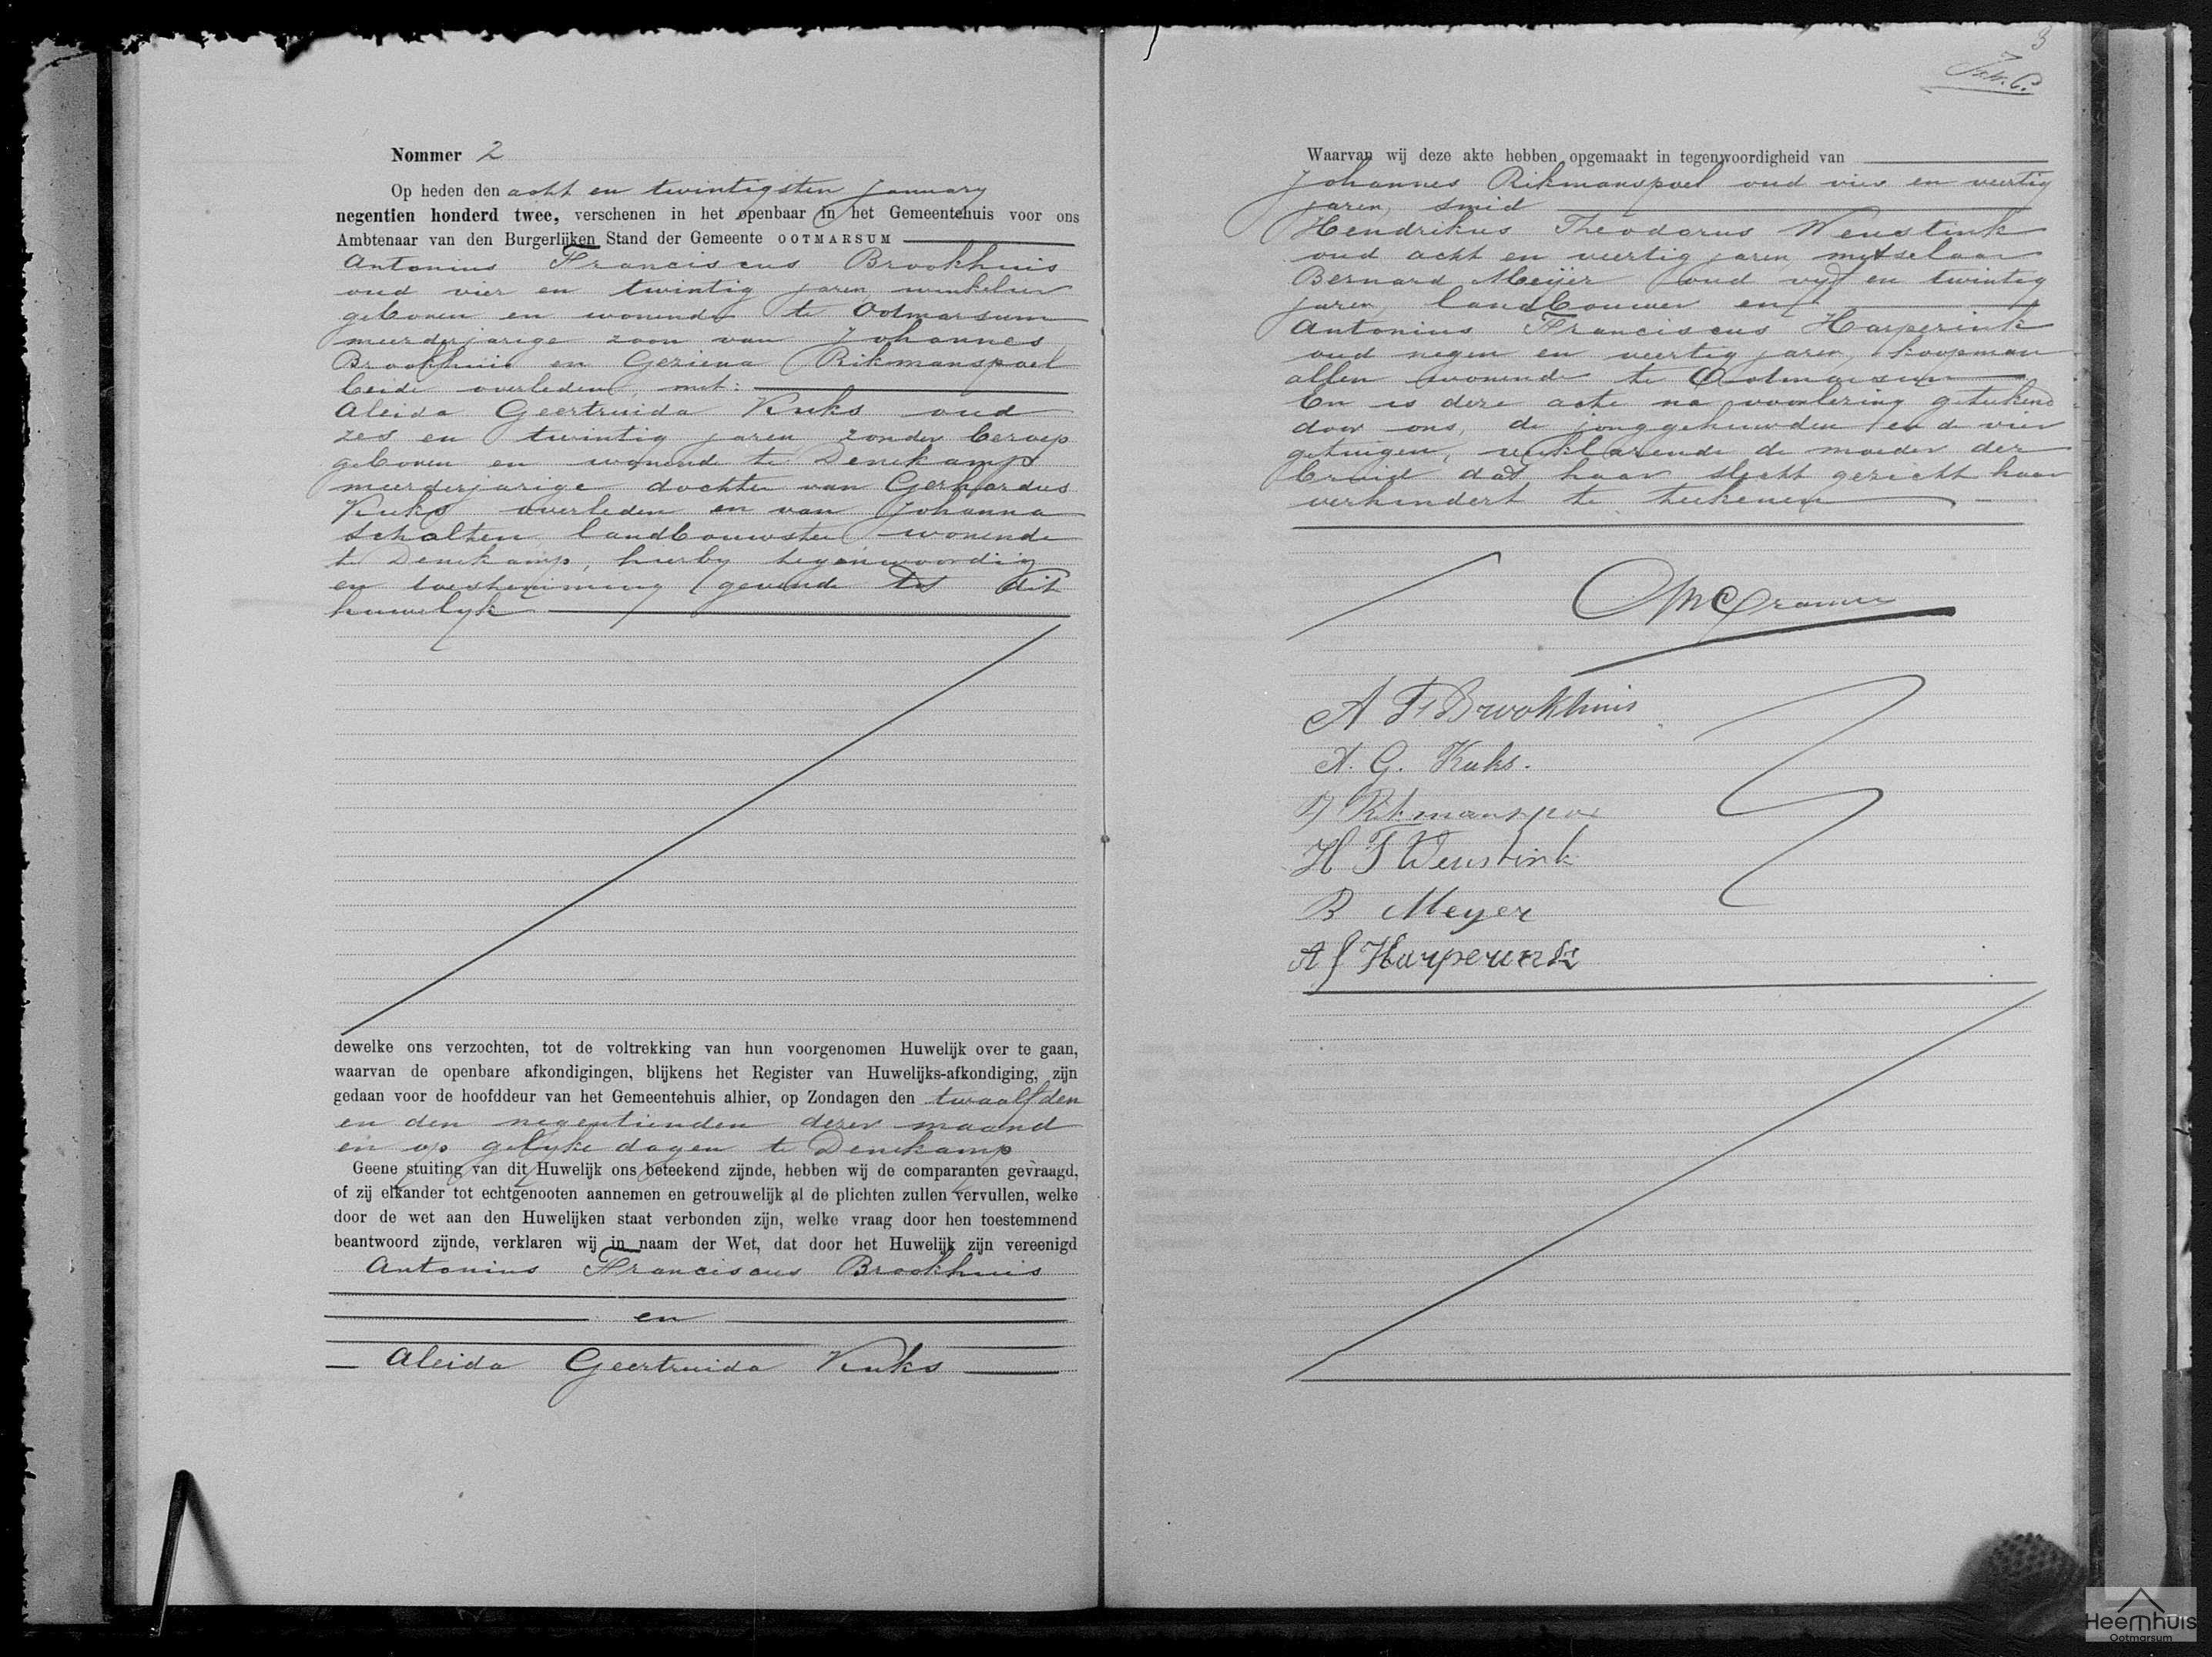 Nommer 2
Op heden den acht en twintigsten January
negentien honderd twee, verschenen in het openbaar in het Gemeentehuis voor ons
Ambtenaar van den Burgerlijken Stand der Gemeente OOTMARSUM
Antonius Franciscus Brookhuis
oud vier en twintig jaren, winkelier
geboren en wonende te Ootmarsum
meerderjarige zoon van Johannes
Brookhuis en Geziena Rikmanspoel
beide overleden, met:
Aleida Geertruida Kuks oud
zes en twintig jaren zonder beroep
geboren en wonende te Denekamp
meerderjarige dochter van Gerhardus
Kuks overleden en van Johanna
Scholten landbouwster wonende
te Denekamp, hierby tegenwoordig
en toestemming gevende tot dit
huwelyk
dewelke ons verzochten, tot de voltrekking van hun voorgenomen Huwelijk over te gaan,
waarvan de openbare afkondigingen, blijkens het Register van Huwelijks-afkondiging, zijn
gedaan voor de hoofddeur van het Gemeentehuis alhier, op Zondagen den twaalfden
en den negentienden dezer maand
en op gelyke dagen te Denekamp
Geene stuiting van dit Huwelijk ons beteekend zijnde, hebben wij de comparanten gevraagd,
of zij elkander tot echtgenooten aannemen en getrouwelijk al de plichten zullen vervullen, welke
door de wet aan den Huwelijken staat verbonden zijn, welke vraag door hen toestemmend
beantwoord zijnde, verklaren wij in naam der Wet, dat door het Huwelijk zijn vereenigd
Antonius Franciscus Brookhuis
en
Aleida Geertruida Kuks
3
Waarvan wij deze akte hebben opgemaakt in tegenwoordigheid van
Johannes Rikmanspoel oud vier en veertig
jaren, smid
Hendrikus Theodorus Weustink
oud acht en veertig jaren, metselaar
Bernard Meijer oud vyf en twintig
jaren, landbouwer en
Antonius Franciscus Harperink
oud negen en veertig jaren, koopman
allen wonende te Ootmarsum
En is deze acte na voorlezing geteekend
door ons, de jonggehuwden en de vier
getuigen, verklarende de moeder der
bruid dat haar slecht gezicht haar
verhindert te teekenen
A F Brookhuis
A. G. Kuks.
H T Weustink
B Meyer
A f Harperink
Heemhuis
Ootmarsum